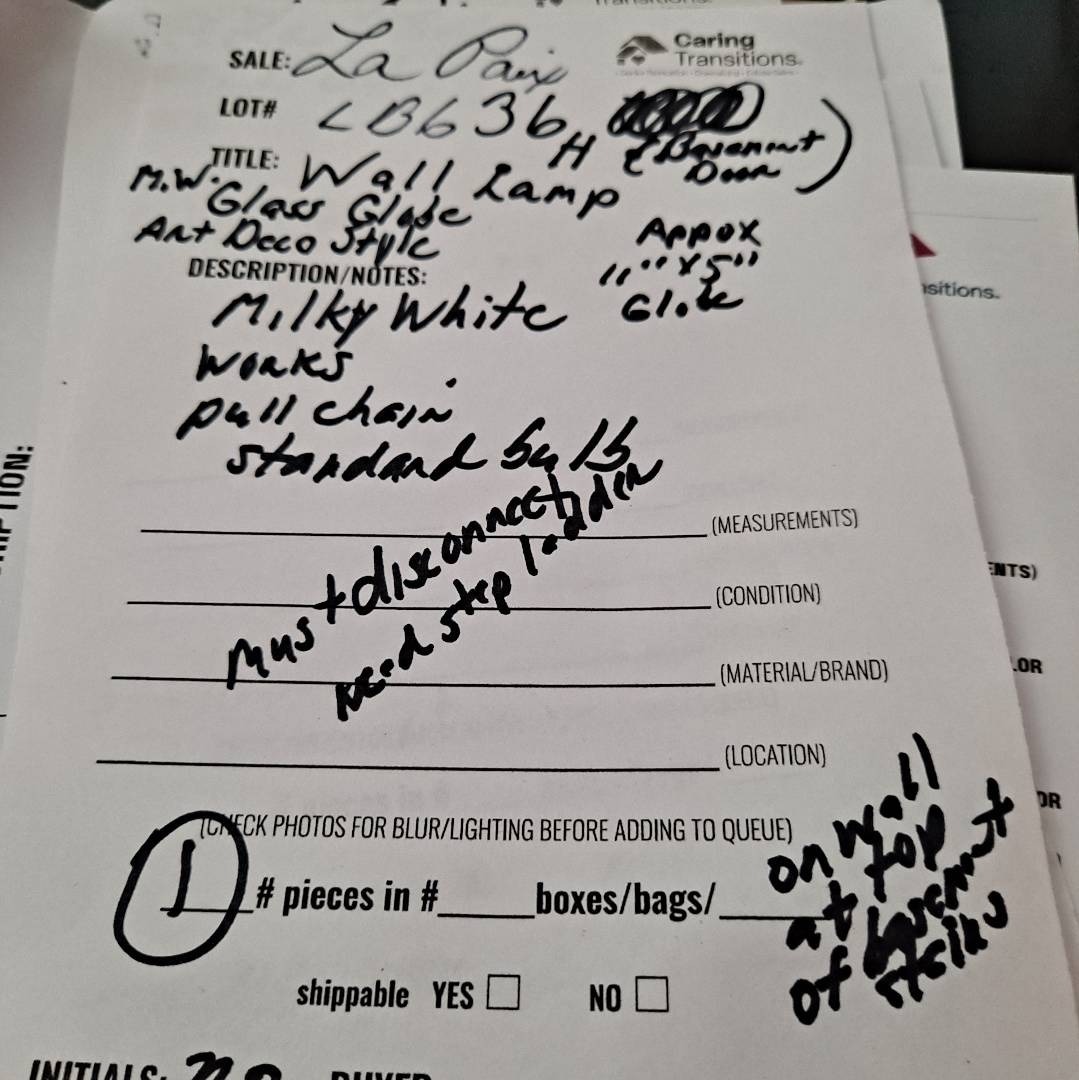 SALE: La Paix
Caring
Transitions.
LOT# LB636 H (Basement
Door)
TITLE: Wall Lamp
M.W. Glass Globe
Art Deco Style
Appox
11" x 5"
Globe
DESCRIPTION/NOTES:
Milky White
Works
pull chain
standard bulb
Must disconnect
Need step ladder
(MEASUREMENTS)
(CONDITION)
(MATERIAL/BRAND)
(LOCATION)
(CHECK PHOTOS FOR BLUR/LIGHTING BEFORE ADDING TO QUEUE)
1 # pieces in #_____boxes/bags/_____
on wall
at top
of basement
stairs
shippable YES □ NO □
INITIALS:
BUYER
sitions.